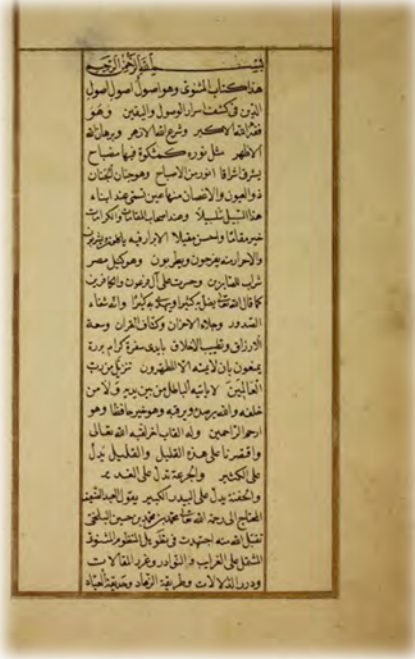 بسم الله الرحمن الرحيم
هذا كتاب المثنوى وهو اصول اصول اصول
الدين فى كشف اسرار الوصول واليقين وهو
فقه الله الاكبر وشرع الله الازهر وبرهان الله
الاظهر مثل نوره كمشكوة فيها مصباح
يشرق اشراقا انور من الاصباح وهو جنان الجنان
ذو العيون والاغصان منها عين تسمى عند ابناء
هذا السبيل سلسبيلا وعند اصحاب المقامات والكرامات
خير مقاما واحسن مقيلا الابرار فيه ياكلون ويشربون
والاحرار منه يفرحون ويطربون وهو كنيل مصر
شراب للصابرين وحسرت على آل فرعون والكافرين
كما قال الله تعالى يضل به كثيرا ويهدى به كثيرا وانه شفاء
الصدور وجلاء الاحزان وكشاف القران وسعة
الارزاق وتطييب الاخلاق بايدى سفرة كرام بررة
يمنعون بان لا يمسه الا المطهرون تنزيل من رب
العالمين لا ياتيه الباطل من بين يديه ولا من
خلفه والله يرصده ويرقبه وهو خير حافظا وهو
ارحم الراحمين وله القاب اخر لقبه الله تعالى
واقتصرنا على هذه القليل والقليل يدل
على الكثير والجرعة تدل على الغدير
والحفنة يدل على البيدر الكبير يقول العبد الضعيف
المحتاج الى رحمة الله تعالى محمد بن محمد بن حسين البلخى
تقبل الله منه اجتهدت فى تطويل المنظوم المثنوى
المشتمل على الغرايب والنوادر وغرر المقالات
ودرر الدلالات وطريقة الزهاد وحديقة العباد